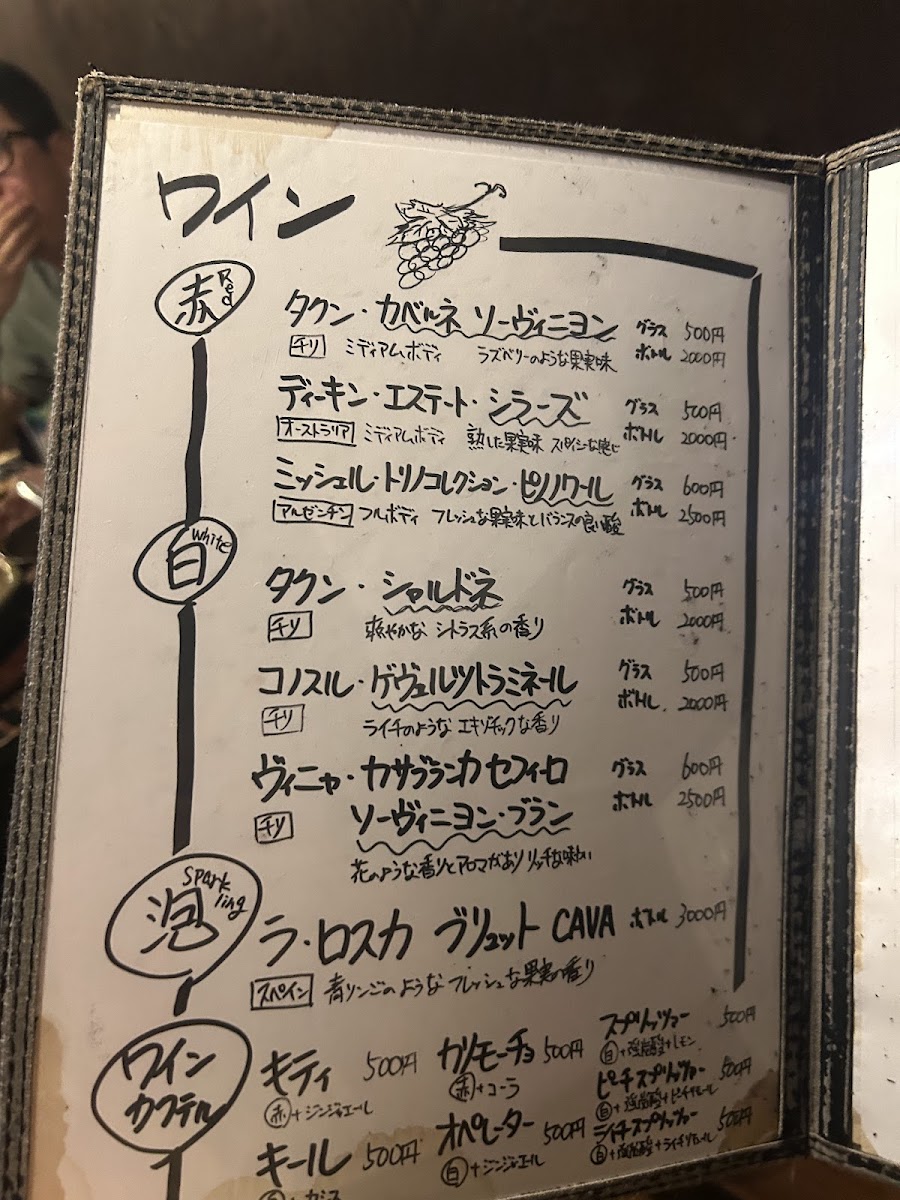 ワイン
赤 Red
タクン・カベルネ ソーヴィニヨン グラス 500円
チリ ミディアムボディ ラズベリーのような果実味 ボトル 2000円
ディーキン・エステート・シラーズ グラス 500円
オーストラリア ミディアムボディ 熟した果実味 スパイシーな感じ ボトル 2000円
ミッシェル・トリノコレクション・ピノノワール グラス 600円
アルゼンチン フルボディ フレッシュな果実味とバランスの良い酸 ボトル 2500円
白 White
タクン・シャルドネ グラス 500円
チリ 爽やかな シトラス系の香り ボトル 2000円
コノスル・ゲヴュルツトラミネール グラス 500円
チリ ライチのような エキゾチックな香り ボトル 2000円
ヴィニャ・カサブランカ セフィーロ グラス 600円
チリ ソーヴィニヨン・ブラン ボトル 2500円
花のような香りとアロマがあり リッチな味わい
泡 Sparkling
ラ・ロスカ ブリュット CAVA ボトル 3000円
スペイン 青リンゴのような フレッシュな果実の香り
ワイン
カクテル
キティ 500円 カリモーチョ 500円 スプリッツァー 500円
赤+ジンジャエール 赤+コーラ 白+強炭酸+レモン
ピーチスプリッツァー 500円
白+強炭酸+ピーチリキュール
キール 500円 オペレーター 500円 ライチスプリッツァー 500円
白+カシス 白+ジンジャエール 白+強炭酸+ライチリキュール